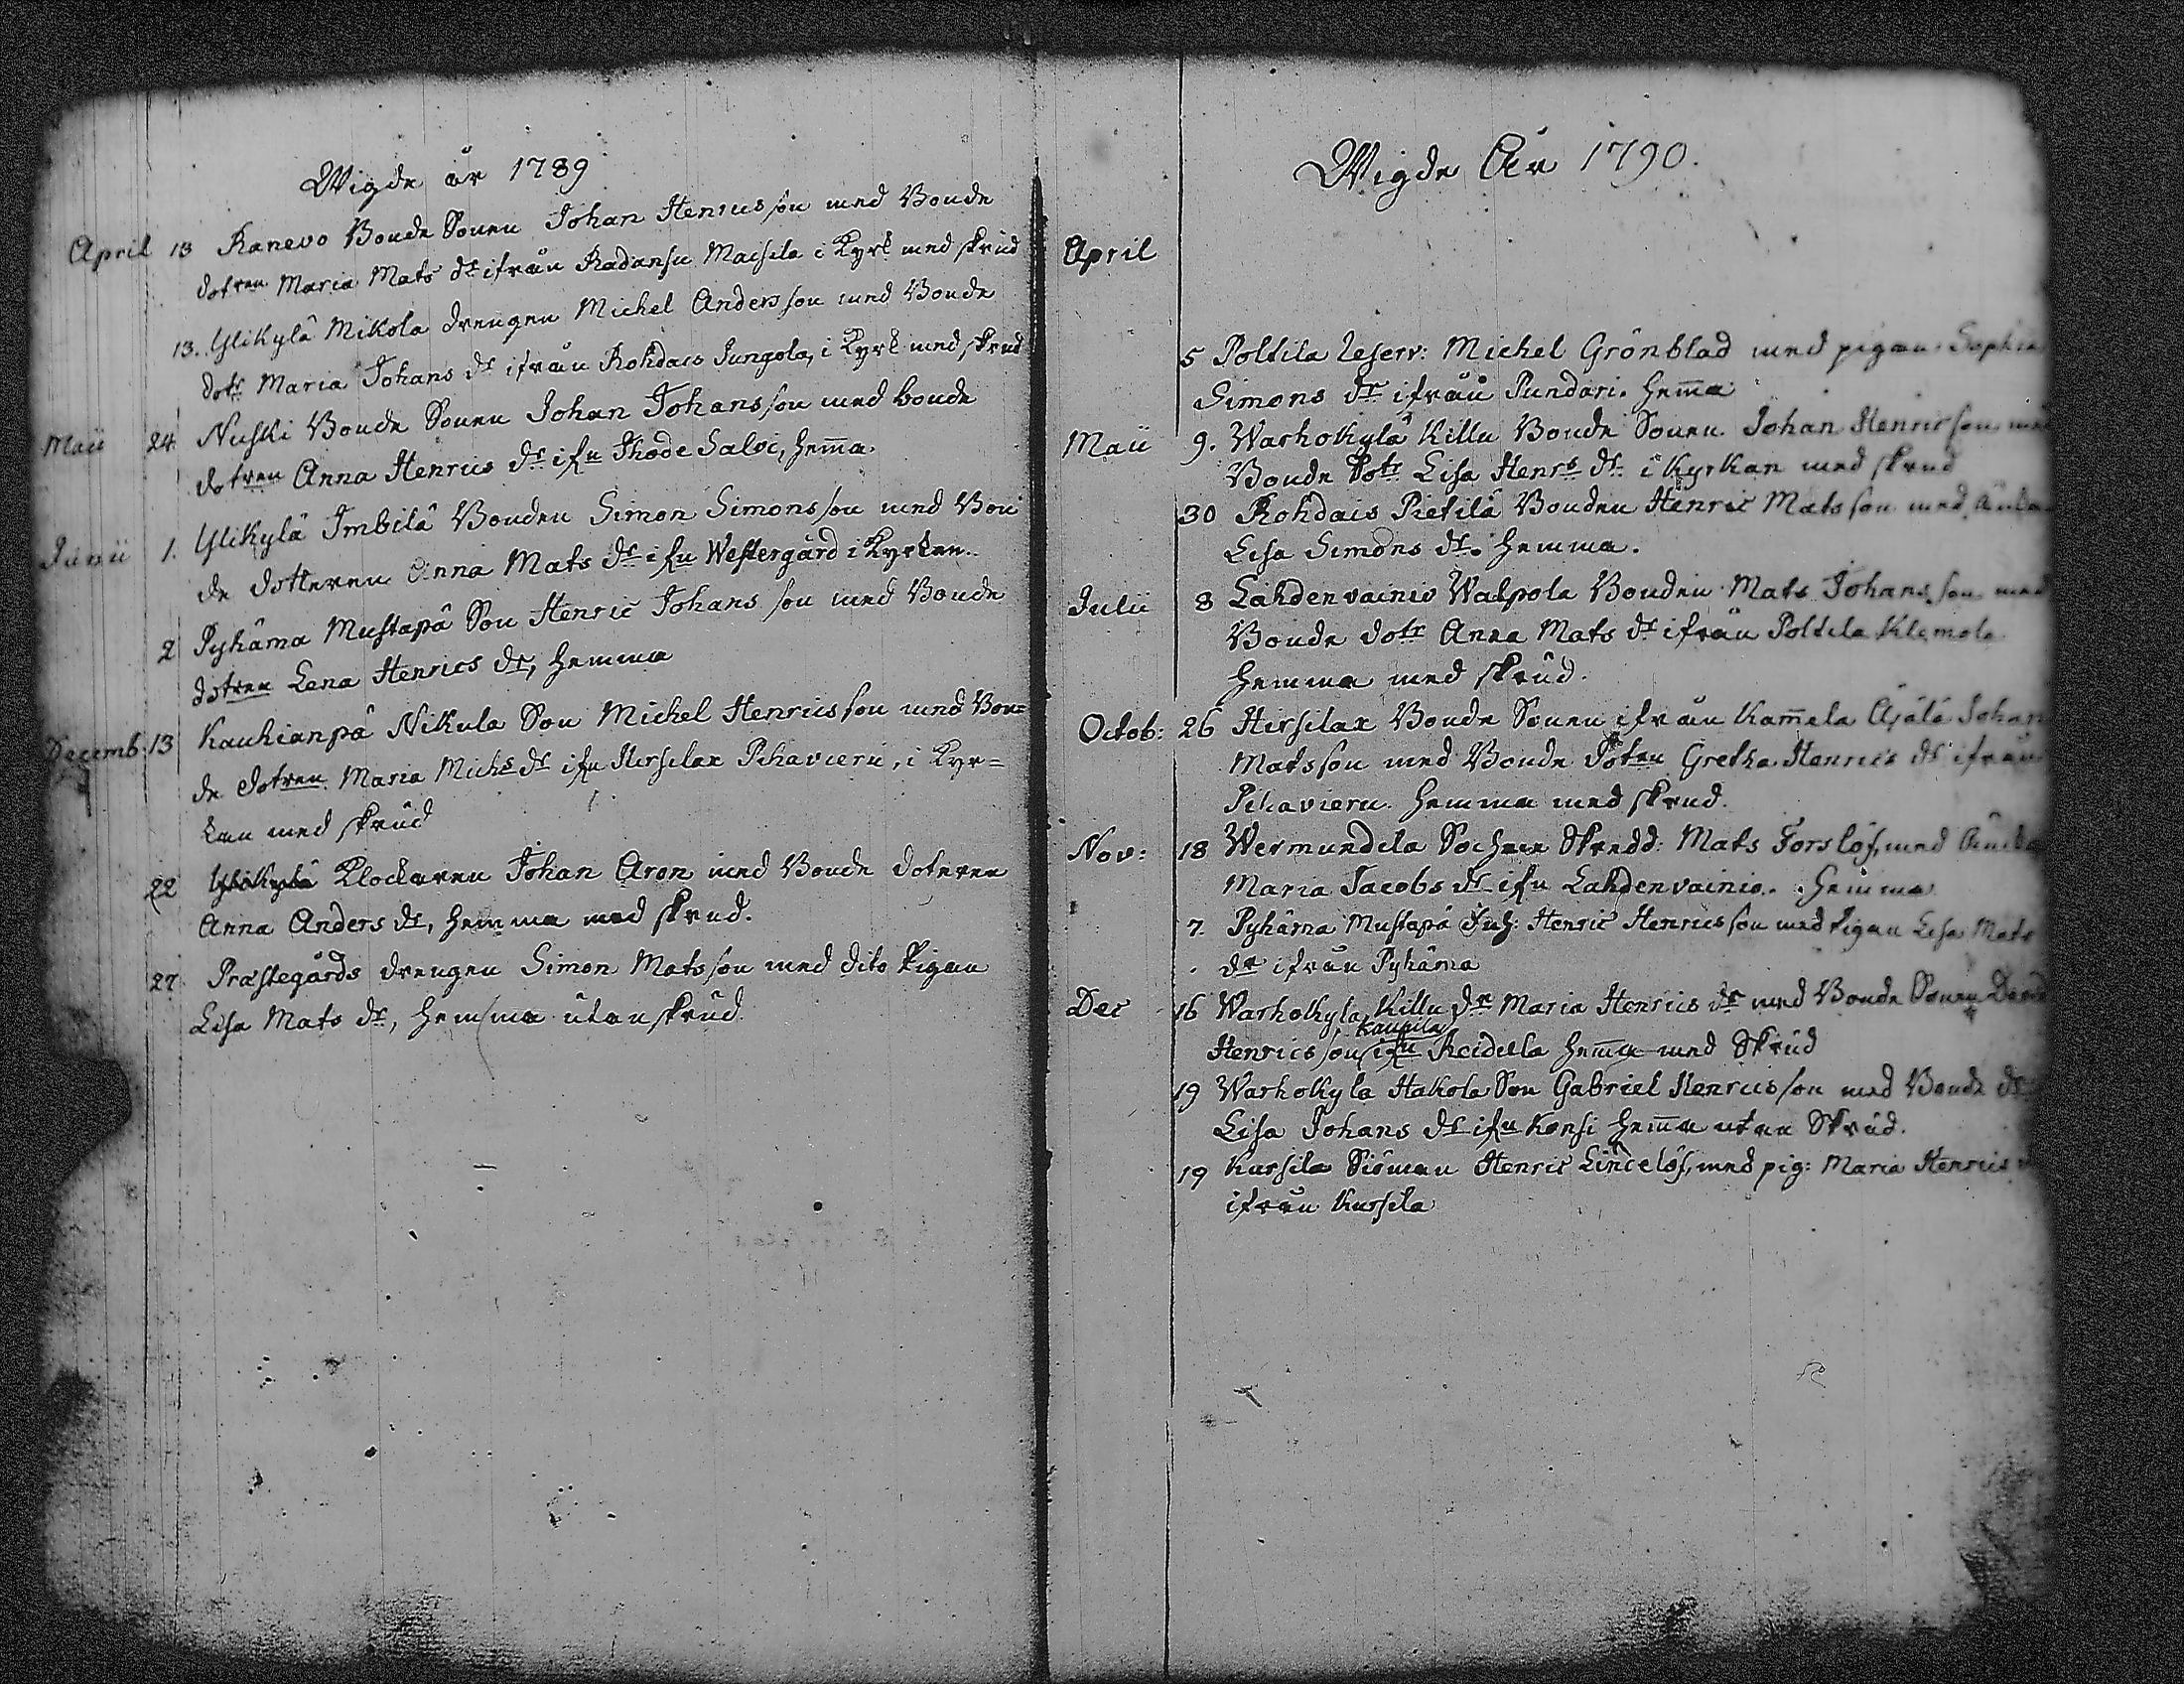 Wigde år 1789
April 13 Ranevo Bonde Sonen Johan Henricsson med Bonde
dotren Maria Mats dr ifrån Radansu Maisila i Kyrk med skrud
13. Ylikylä Mikola drengen Michel Andersson med Bonde
dotr Maria Johans dr ifrån Rohdais Jungola, i Kyrk med skrud
Maii 24 Nuhki Bonde Sonen Johan Johansson med bonde
dotren Anna Henrics dr ifn Thode Saloi, hem̅a.
Junii 1. Ylikylä Imbilä Bonden Simon Simonsson med Bon
de dotteren Anna Mats dr ifn Westergård i Kyrkan.
2 Pyhäma Mustapä Son Henric Johansson med Bonde
dotren Lena Henrics dr, hemma
Decemb: 13 Kauhianpä Nikula Son Michel Henricsson med Bon=
de dotren Maria Michs dr ifn Hirsilax Pihavieru, i Kyr=
kan med skrud
22 Ylikylä Klockaren Johan Aron med Bonde doteren
Anna Anders dr, hemma med skrud.
27 Præstegårds drengen Simon Matsson med dito Pigan
Lisa Mats dr, hemma utan skrud
Wigde År 1790.
April
5 Poltila Reserv: Michel Grönblad med pigan Sophia
Simons dr ifrån Pundari. hem̅a
Maii 9. Warhokylä Killu Bonde Sonen Johan Henricson med
Bonde Dotr Lisa Henrs dr i Kyrkan med skrud
30 Rohdais Pietilä Bonden Henric Matsson med Änkan
Lisa Simons dr. hemma.
Julii 8 Lahdenvainio Walpola Bonden Mats Johansson med
Bonde dotr Anna Mats dr ifrån Poltila Klemola
hemma med skrud.
Octob: 26 Hirsilax Bonde Sonen ifrån Kam̅ela Äjälä Johan
Matsson med Bonde Dotren Gretha Henrics dr ifrån
Pihavieru. hemma med skrud.
Nov: 18 Wermundila Sochne Skredd: Mats Forslöf, med Änkan
Maria Jacobs dr ifn Lahdenvainio. hemma
7 Pyhäma Mustapä Inh: Henric Henricsson med Pigan Lisa Mats
dr ifrån Pyhäma
Dec 16 Warhokyla Killu Dr Maria Henrics dr med Bonde Sonen David
Henricsson ifn Kaupila Reidilla hem̅a med Skrud
19 Warhokyla Hakola Son Gabriel Henricsson med Bonde dr
Lisa Johans dr ifn Konsi hem̅a utan Skrud.
19 Kursila Siöman Henric Lindelöf, med pig: Maria Henrics
ifrån Kursila